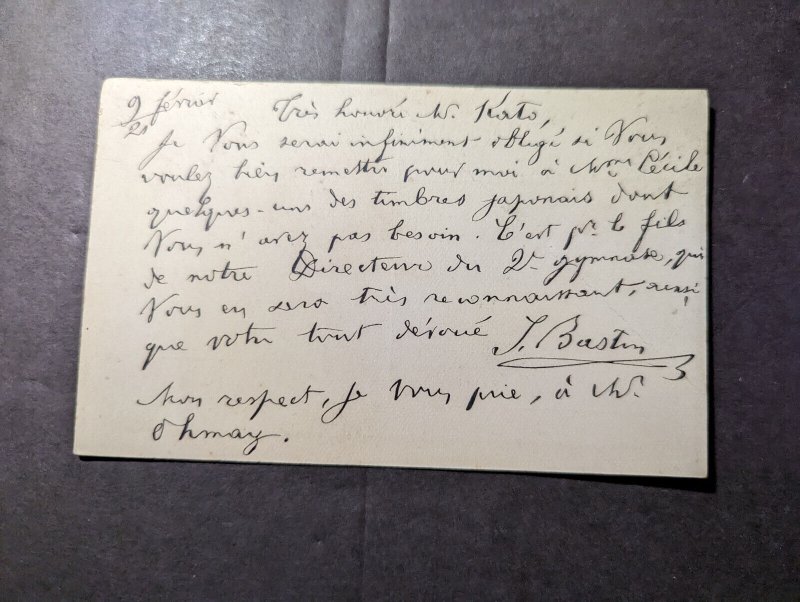 9/21 février
Très honoré M. Kato,
Je Vous serai infiniment obligé si Vous
voulez bien remettre pour moi à Mme Cécile
quelques-uns des timbres japonais dont
Vous n'avez pas besoin. C'est pr. le fils
de notre Directeur du 2d gymnase, qui
Vous en sera très reconnaissant, ainsi
que votre tout dévoué J. Bastin
Mon respect, je Vous prie, à M.
Ohmay.